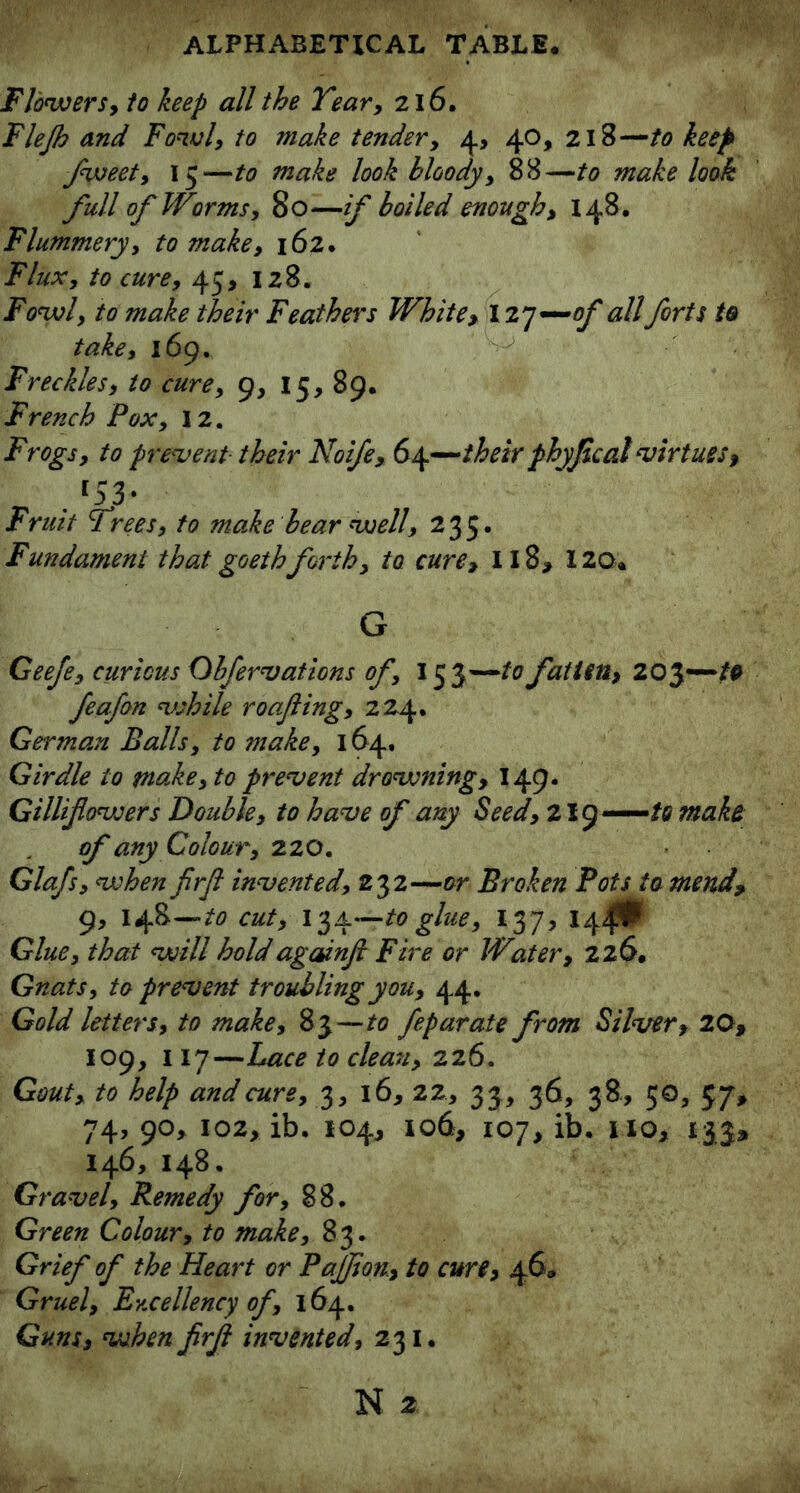 ALPHABETICAL TABLE.
Flowers, to keep all the Year, 216.
Fleſh and Fowl, to make tender, 4, 40, 218—to keep
ſweet, 15—to make look bloody, 88—to make look
full of Worms, 80—if boiled enough, 148.
Flummery, to make, 162.
Flux, to cure, 45, 128.
Fowl, to make their Feathers White, 127—of all ſorts to
take, 169.
Freckles, to cure, 9, 15, 89.
French Pox, 12.
Frogs, to prevent their Noiſe, 64—their phyſical virtues,
153.
Fruit Trees, to make bear well, 235.
Fundament that goeth forth, to cure, 118, 120.
G
Geeſe, curious Obſervations of, 153—to fatten, 203—to
ſeaſon while roaſting, 224.
German Balls, to make, 164.
Girdle to make, to prevent drowning, 149.
Gilliflowers Double, to have of any Seed, 219——to make
of any Colour, 220.
Glaſs, when firſt invented, 232—or Broken Pots to mend,
9, 148—to cut, 134—to glue, 137, 144
Glue, that will hold againſt Fire or Water, 226.
Gnats, to prevent troubling you, 44.
Gold letters, to make, 83—to ſeparate from Silver, 20,
109, 117—Lace to clean, 226.
Gout, to help and cure, 3, 16, 22, 33, 36, 38, 50, 57,
74, 90, 102, ib. 104, 106, 107, ib. 110, 133,
146, 148.
Gravel, Remedy for, 88.
Green Colour, to make, 83.
Grief of the Heart or Paſſion, to cure, 46.
Gruel, Excellency of, 164.
Guns, when firſt invented, 231.
N 2